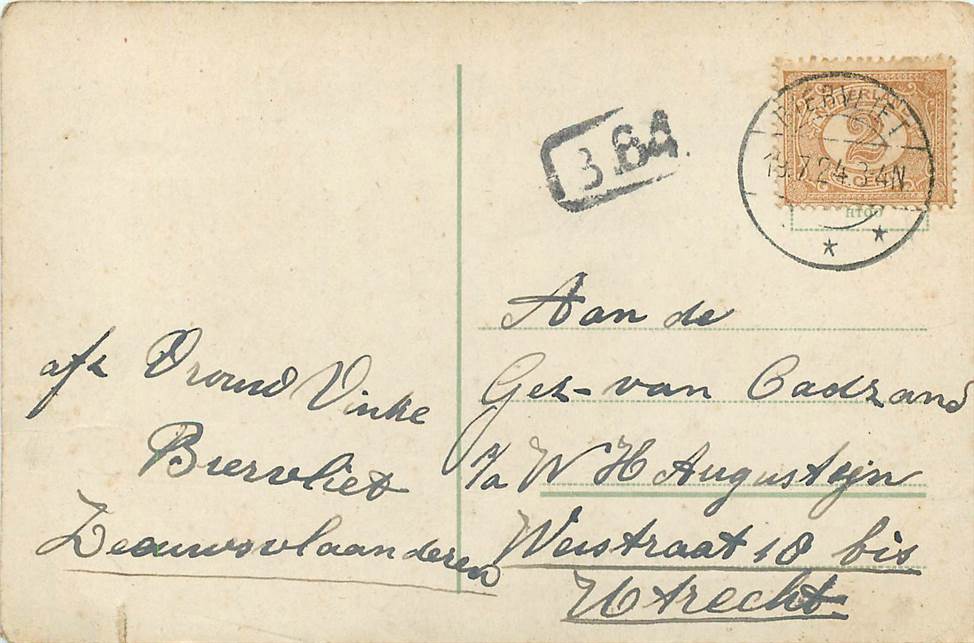 3.84.
2
19.7.24.3-4N
Aan de
Gez-van Cadzand
p/a W H Augusteijn
Weistraat 18 bis
Utrecht
afz Vinke
Biervliet
Zeeuwsvlaanderen